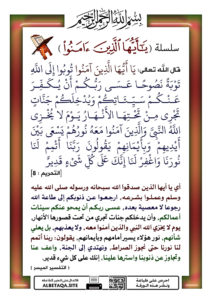 بسم الله الرحمن الرحيم
سلسلة ﴿يَٰٓأَيُّهَا ٱلَّذِينَ ءَامَنُوا۟﴾
قال الله تعالى: يَا أَيُّهَا الَّذِينَ آمَنُوا تُوبُوا إِلَى اللَّهِ
تَوْبَةً نَصُوحًا عَسَى رَبُّكُمْ أَنْ يُكَفِّرَ
عَنْكُمْ سَيِّئَاتِكُمْ وَيُدْخِلَكُمْ جَنَّاتٍ
تَجْرِي مِنْ تَحْتِهَا الْأَنْهَارُ يَوْمَ لَا يُخْزِي
اللَّهُ النَّبِيَّ وَالَّذِينَ آمَنُوا مَعَهُ نُورُهُمْ يَسْعَى بَيْنَ
أَيْدِيهِمْ وَبِأَيْمَانِهِمْ يَقُولُونَ رَبَّنَا أَتْمِمْ لَنَا
نُورَنَا وَاغْفِرْ لَنَا إِنَّكَ عَلَى كُلِّ شَيْءٍ قَدِيرٌ
[التحريم : 8]
أي يا أيها الذين صدقوا الله سبحانه ورسوله صلى الله عليه
وسلم وعملوا بشرعه، ارجعوا عن ذنوبكم إلى طاعة الله
رجوعا لا معصية بعده، عسى ربكم أن يمحو عنكم سيئات
أعمالكم، وأن يدخلكم جنات تجري من تحت قصورها الأنهار،
يوم لا يخزي الله النبي والذين آمنوا معه، ولا يعذبهم، بل يعلي
شأنهم، نور هؤلاء يسير أمامهم وبأيمانهم، يقولون: ربنا أتمم
لنا نورنا حتى نجوز الصراط، ونهتدي إلى الجنة، واعف عنا
وتجاوز عن ذنوبنا واسترها علينا، إنك على كل شيء قدير.
[التفسير الميسر]
ALBETAQA.SITE